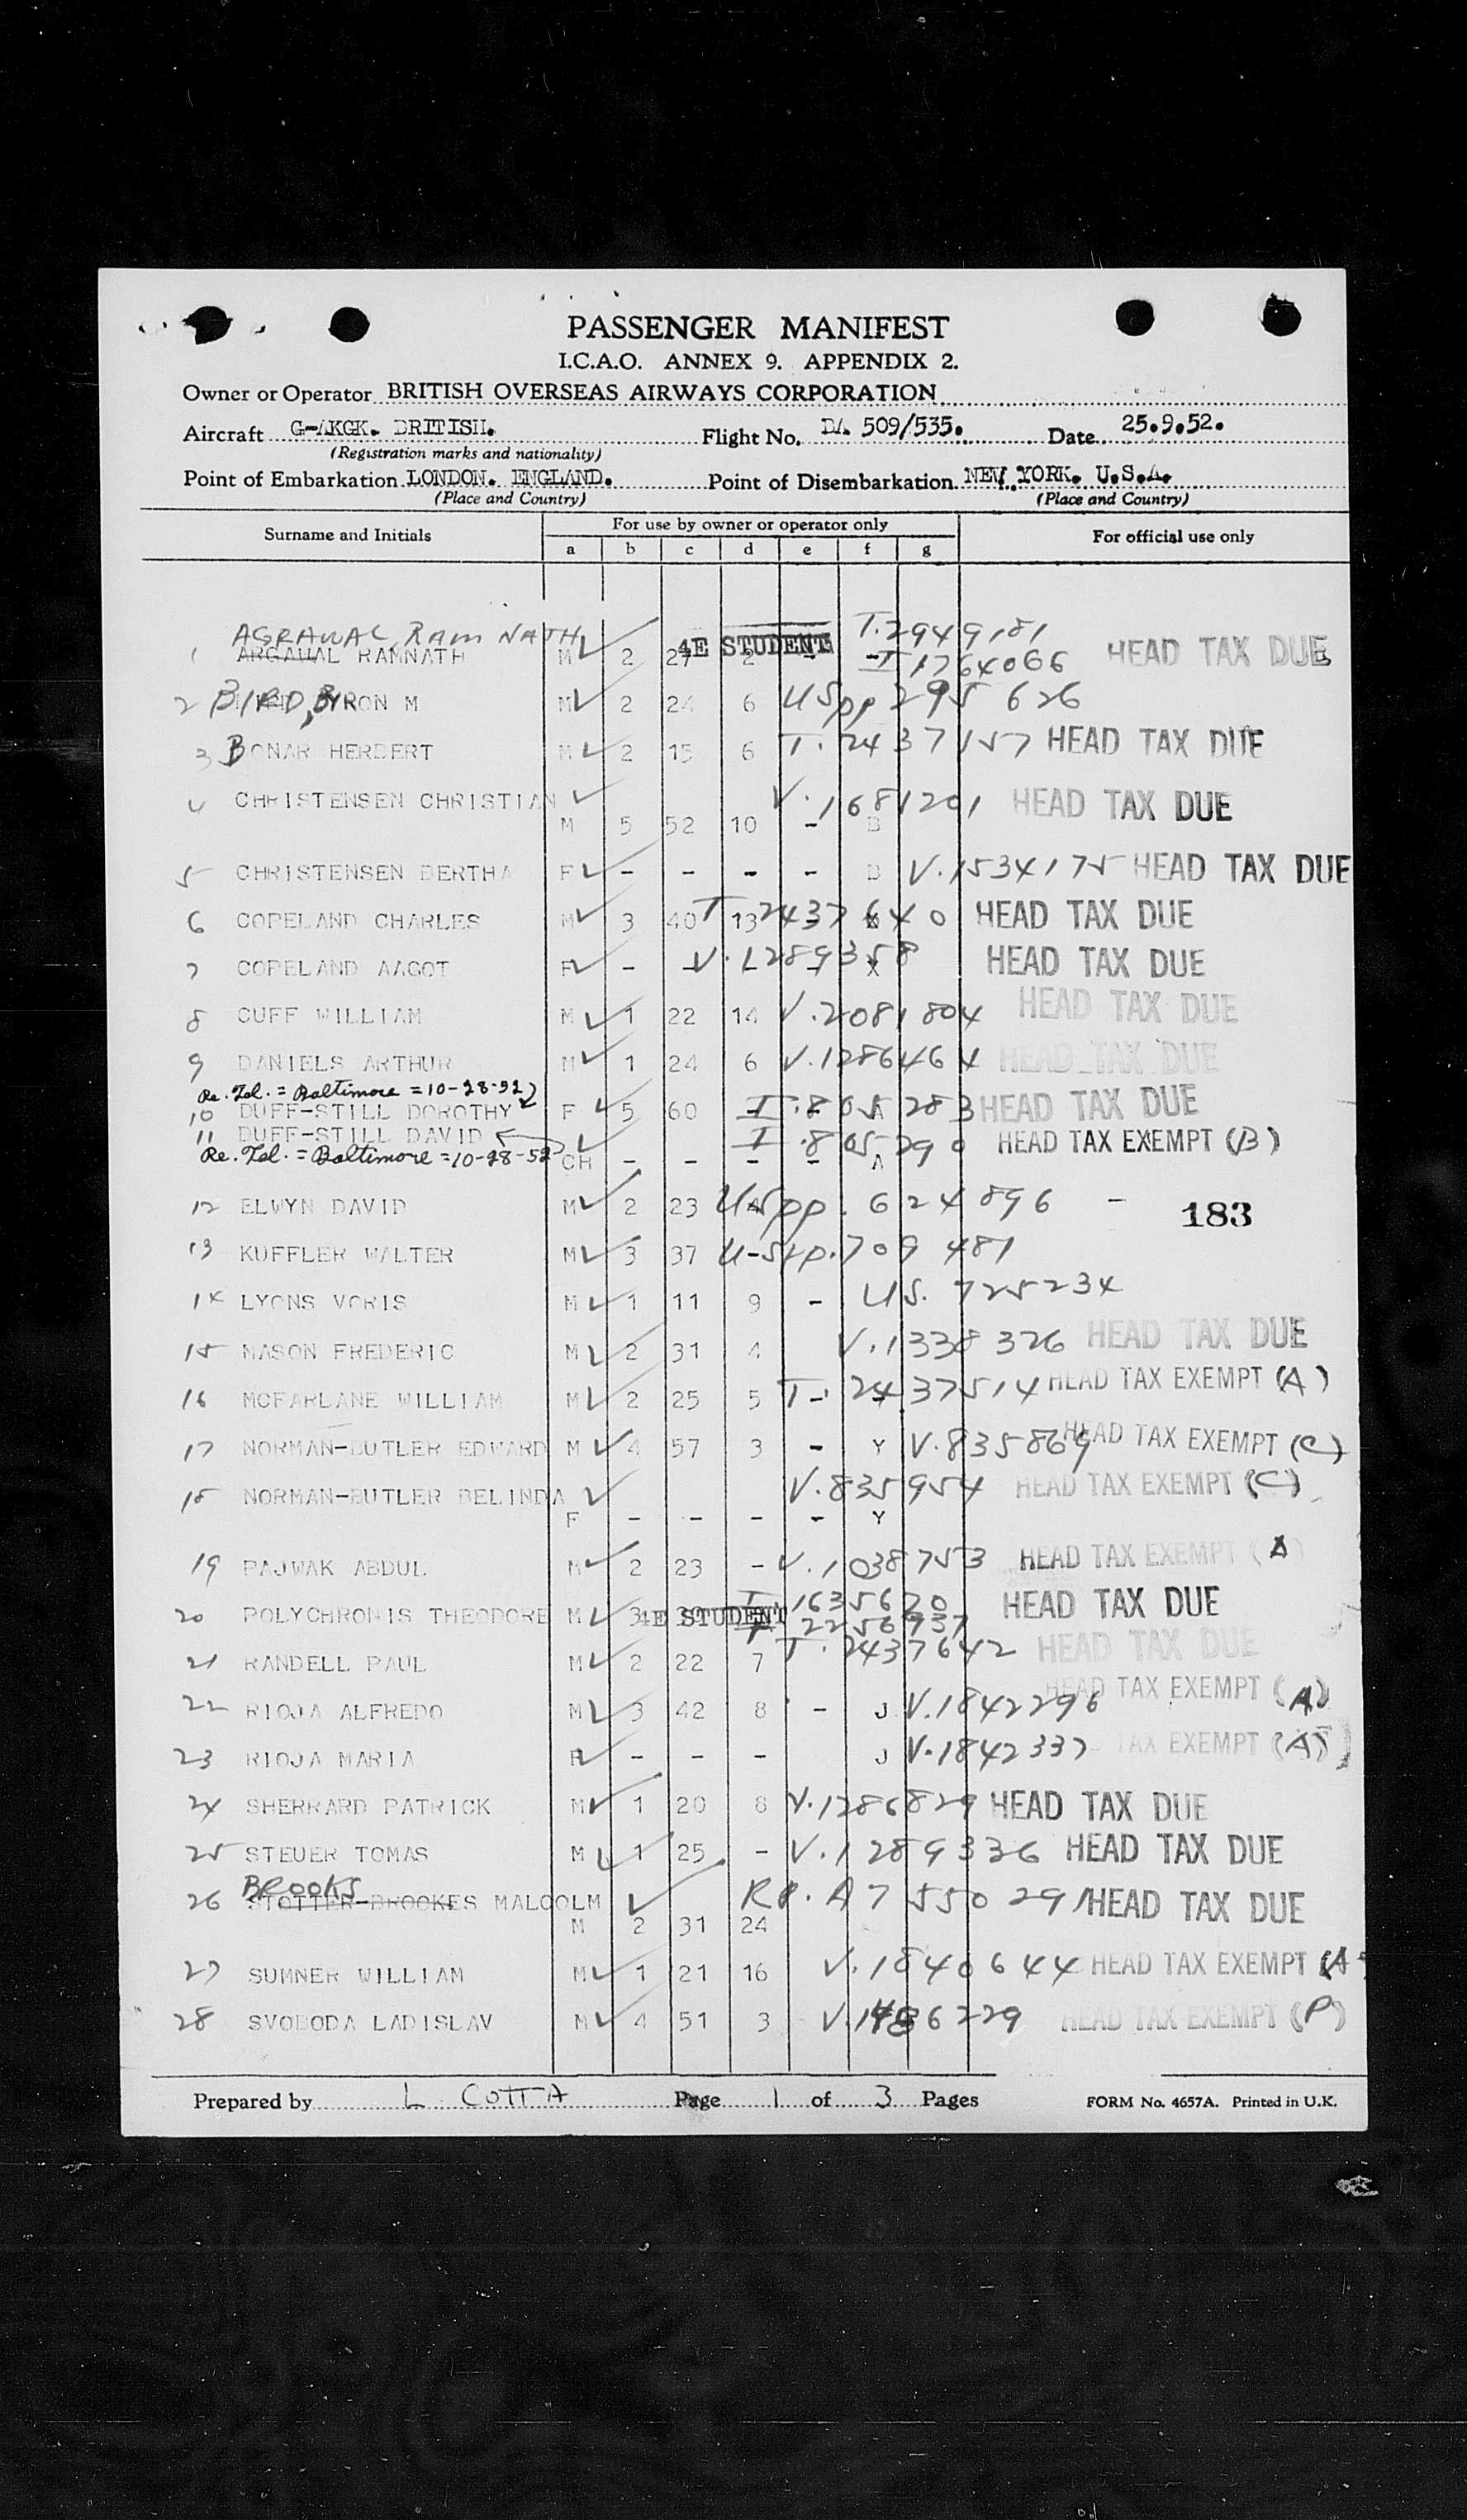 PASSENGER MANIFEST
I.C.A.O. ANNEX 9. APPENDIX 2.
Owner or Operator BRITISH OVERSEAS AIRWAYS CORPORATION
Aircraft G-AKGK. BRITISH. Flight No. BA 509/535. Date 25.9.52.
(Registration marks and nationality)
Point of Embarkation LONDON. ENGLAND. Point of Disembarkation NEW YORK. U.S.A.
(Place and Country) (Place and Country)
Surname and Initials For use by owner or operator only For official use only
a b c d e f g
AGRAWAL, RAM NATH 4E STUDENT T.2949181
1 ARGAWAL RAMNATH M 2 27 2 - - I 1764066 HEAD TAX DUE
2 BIRD, BYRON M M 2 24 6 USpp 295 626
3 BONAR HERBERT M 2 15 6 T. 2437157 HEAD TAX DUE
4 CHRISTENSEN CHRISTIAN V. 1681201 HEAD TAX DUE
M 5 52 10 - B
5 CHRISTENSEN BERTHA F - - - - B V.1534175 HEAD TAX DUE
6 COPELAND CHARLES M 3 40 13 - X T 2437640 HEAD TAX DUE
7 COPELAND AAGOT F - - - - X V.1289358 HEAD TAX DUE
8 CUFF WILLIAM M 1 22 14 V.2081804 HEAD TAX DUE
9 DANIELS ARTHUR M 1 24 6 V.1286464 HEAD TAX DUE
Re. Tel. = Baltimore = 10-28-52
10 DUFF-STILL DOROTHY F 5 60 - - A I.805283 HEAD TAX DUE
11 DUFF-STILL DAVID I.805290 HEAD TAX EXEMPT (B)
Re. Tel. = Baltimore = 10-28-52 CH - - - - A
12 ELWYN DAVID M 2 23 4 USpp. 624896 -
183
13 KUFFLER WALTER M 3 37 709 481
14 LYONS VORIS M 1 11 9 - US. 725234
15 MASON FREDERIC M 2 31 4 V.1338326 HEAD TAX DUE
16 MCFARLANE WILLIAM M 2 25 5 - - T. 2437514 HEAD TAX EXEMPT (A)
17 NORMAN-BUTLER EDWARD M 4 57 3 - Y V.835869 HEAD TAX EXEMPT (C)
18 NORMAN-BUTLER BELINDA V.835954 HEAD TAX EXEMPT (C)
F - - - - Y
19 PAJWAK ABDUL M 2 23 - V.1038753 HEAD TAX EXEMPT (A)
20 POLYCHRONIS THEODORE M 3 4E STUDENT I 1635620 HEAD TAX DUE
T 2256937
21 RANDELL PAUL M 2 22 7 T. 2437642 HEAD TAX DUE
22 RIOJA ALFREDO M 3 42 8 - J V.1842296 HEAD TAX EXEMPT (A)
23 RIOJA MARIA F - - - J V.1842337 TAX EXEMPT (A)
24 SHERRARD PATRICK M 1 20 8 V.1286829 HEAD TAX DUE
25 STEUER TOMAS M 1 25 - V.1289336 HEAD TAX DUE
BROOKS
26 STOTTER-BROOKES MALCOLM RP. A7550291 HEAD TAX DUE
M 2 31 24
27 SUMNER WILLIAM M 1 21 16 V.1840644 HEAD TAX EXEMPT (A)
28 SVOBODA LADISLAV M 4 51 3 V.1486229 HEAD TAX EXEMPT (P)
Prepared by L COTTA Page 1 of 3 Pages FORM No. 4657A. Printed in U.K.